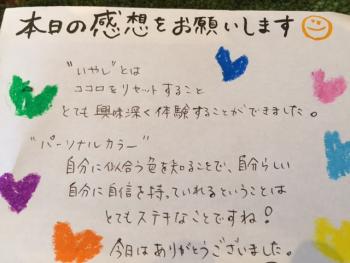 本日の感想をお願いします
"いやし"とは
ココロをリセットすること
とても興味深く体験することができました。
"パーソナルカラー"
自分に似合う色を知ることで、自分らしい
自分に自信を持っていれるということは
とてもステキなことですね!
今日はありがとうございました。